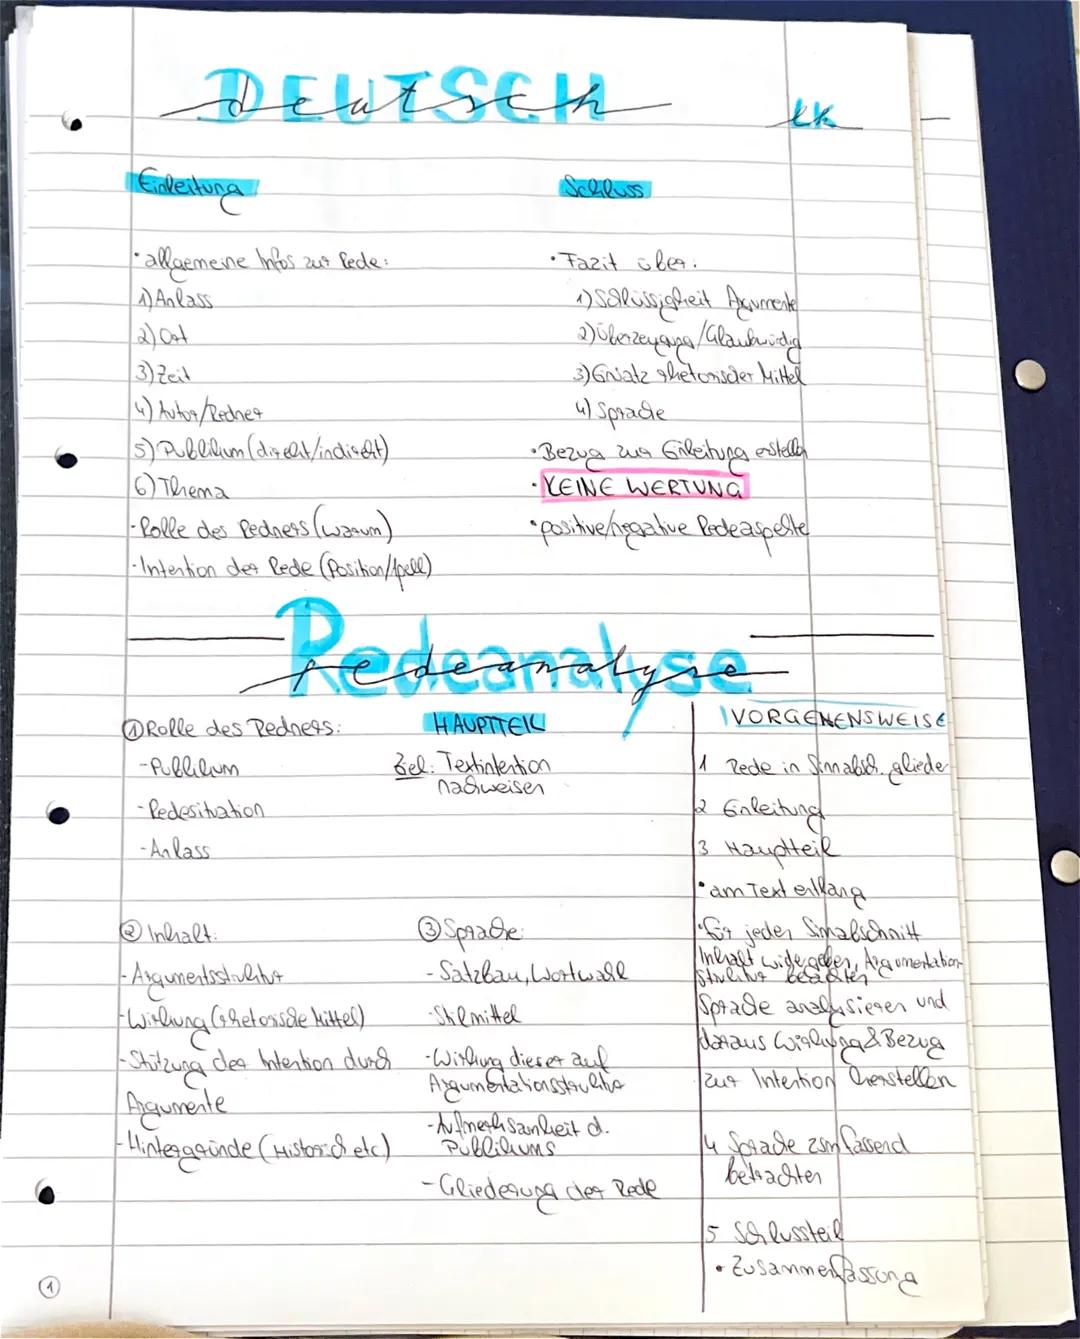 DEUTSCH
deutsch
LK
Einleitung
• allgemeine Infos zur Rede:
1) Anlass
2) Ort
3) Zeit
4) Autor/Redner
5) Publikum (direkt/indirekt)
6) Thema
- Rolle des Redners (warum)
- Intention der Rede (Position/Apell)
Schluss
• Fazit über:
1) Schlüssigkeit Argumente
2) Überzeugung/Glaubwürdig
3) Einsatz rhetorischer Mittel
4) Sprache
• Bezug zur Einleitung erstellen
• KEINE WERTUNG
• positive/negative Redeaspekte
Redeanalyse
redeanalyse
① Rolle des Redners:
- Publikum
- Redesituation
- Anlass
HAUPTTEIL
Ziel: Textintention
nachweisen
② Inhalt:
- Argumentsstruktur
- Wirkung (rhetorische Mittel)
- Stützung der Intention durch
Argumente
- Hintergründe (Historisch etc)
③ Sprache:
- Satzbau, Wortwahl
- Stilmittel
- Wirkung dieser auf
Argumentationsstruktur
- Aufmerksamkeit d.
Publikums
- Gliederung der Rede
VORGEHENSWEISE
1 Rede in Sinnabsch. glieder
2 Einleitung
3 Hauptteil
• am Text entlang
• für jeden Sinnabschnitt
Inhalt widergeben, Argumentation-
struktur beachten
Sprache analysieren und
daraus Wirkung & Bezug
zur Intention herstellen
4 Sprache zsmfassend
betrachten
5 Schlussteil
• Zusammenfassung
①